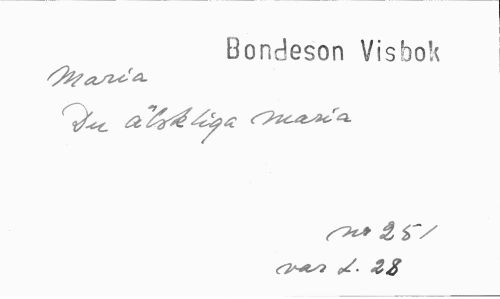 Bondeson Visbok
Maria
Du älskliga Maria
nr 251
var s. 28